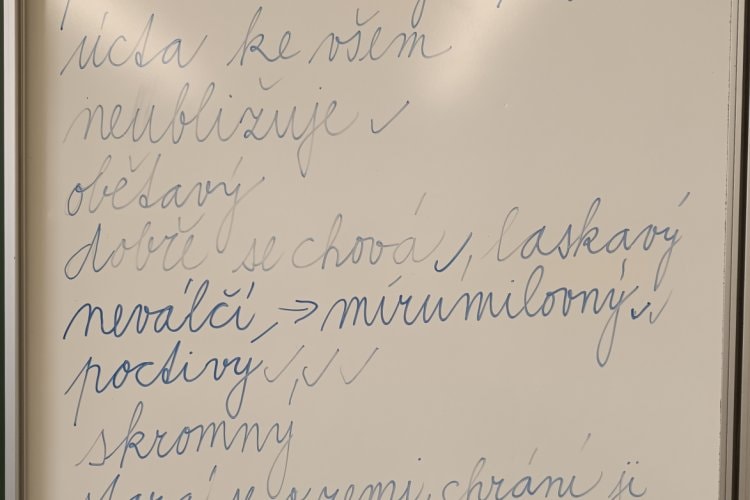 úcta ke všem
neubližuje ✓
obětavý
dobře se chová ✓, laskavý
neválčí, → mírumilovný ✓✓
poctivý ✓,✓✓
skromný
stará se o zemi, chrání ji